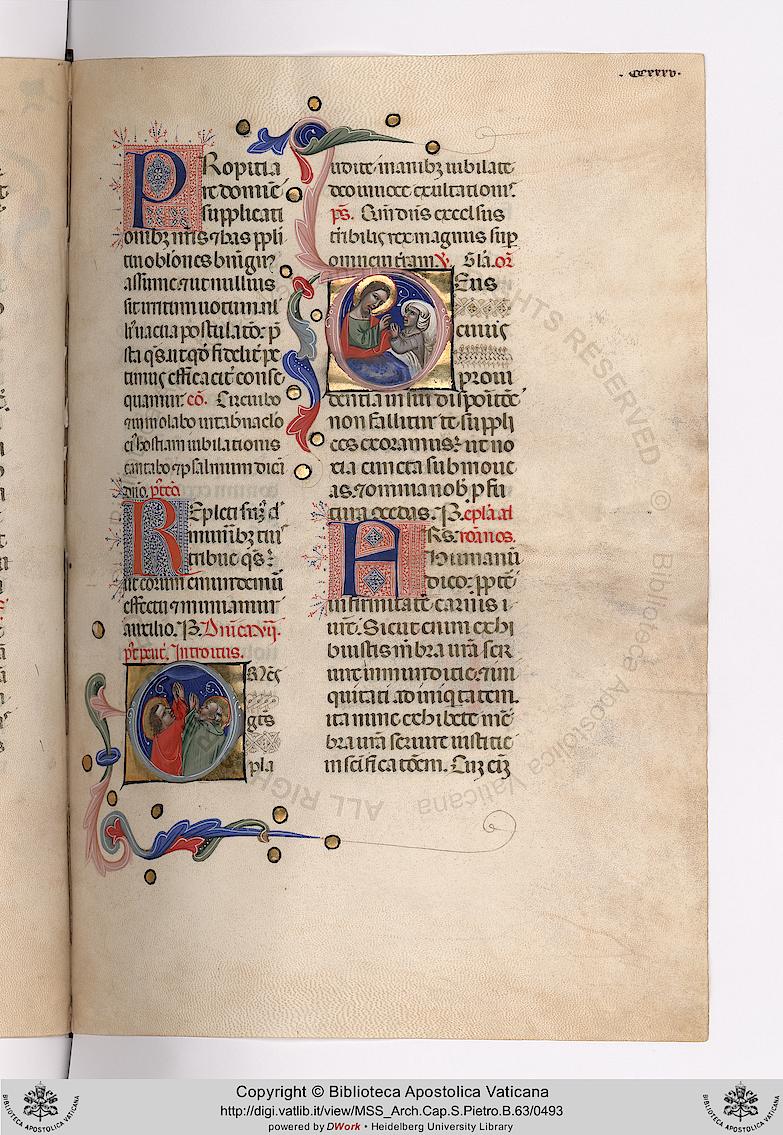 .ccxxxv.
PRopitia
re domine
supplicati
onibus nostris et has ppli
tui oblones benignus
assume et ut nullius
sit irritum uotum nul
lius uacua postulatio p̄
sta qs ut qd fideliter pe
timus efficaciter conse
quamur. cō. Circuibo
et immolabo in tabernaclo
eius hostiam iubilationis
cantabo et psalmum dicā
dno. p̄t cō
REpleti sum9 d
muneribus tuis
tribue qs
ut eorum et mundemur
effectu et muniamur
auxilio. P. Dnica vij.
p9t pent. Introitus.
OMnes
gētes
pla
udite manibz iubilate
deo in uoce exultationis
ps. Qm dn̄s excelsus
terribilis rex magnus sup
omnem terram. V. Gla. or
DEus
cuius
proui
dentia in sui dispositōe
non fallitur te suppli
ces exoramus ut no
xia cuncta submoue
as et omnia nob p futu
tura cōcedas. P. epla ad
FRs. romanos.
Humanū
dico. ppter
infirmitatē carnis u
rē. Sicut enim exhi
buistis mbra ura ser
uire inmundicie et ini
quitati ad iniqtatem.
ita nunc exhibete me
bra ura seruire iustitie
in scīficatōem. Cum eīz
ALL RIGHTS RESERVED © Biblioteca Apostolica Vaticana
Copyright © Biblioteca Apostolica Vaticana
http://digi.vatlib.it/view/MSS_Arch.Cap.S.Pietro.B.63/0493
powered by DWork • Heidelberg University Library
BIBLIOTECA APOSTOLICA VATICANA
BIBLIOTECA APOSTOLICA VATICANA